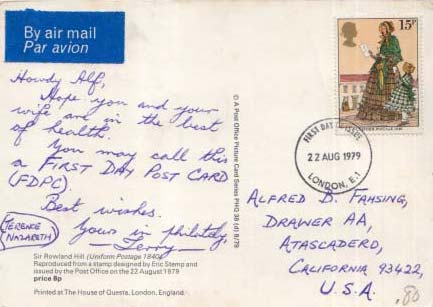 By air mail
Par avion
Howdy Alf,
Hope you and your
wife are in the best
of health.
You may call this
a FIRST DAY POST CARD
(FDPC).
Best wishes.
Yours in philately,
Terry
TERENCE
NAZARETH
Sir Rowland Hill (Uniform Postage 1840)
Reproduced from a stamp designed by Eric Stemp and
issued by the Post Office on the 22 August 1979
price 8p
Printed at The House of Questa, London, England.
© A Post Office Picture Card Series PHQ 38 (d) 8/79
15P
FIRST DAY OF ISSUE
22 AUG 1979
LONDON, E.1
ALFRED D. FAHSING,
DRAWER AA,
ATASCADERO,
CALIFORNIA 93422,
U.S.A.
.80